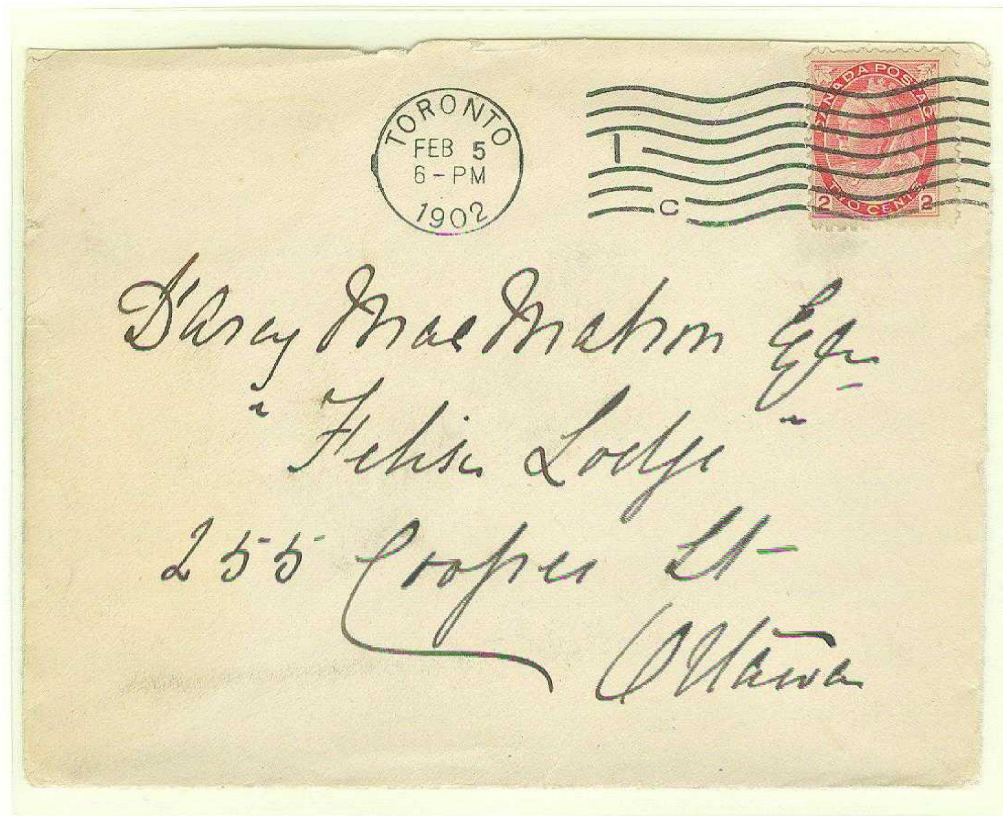 TORONTO
FEB 5
6-PM
1902
I
C
CANADA POSTAGE
2 TWO CENTS 2
D'Arcy MacMahon Esqr
" Lodge "
255 Cooper St
Ottawa